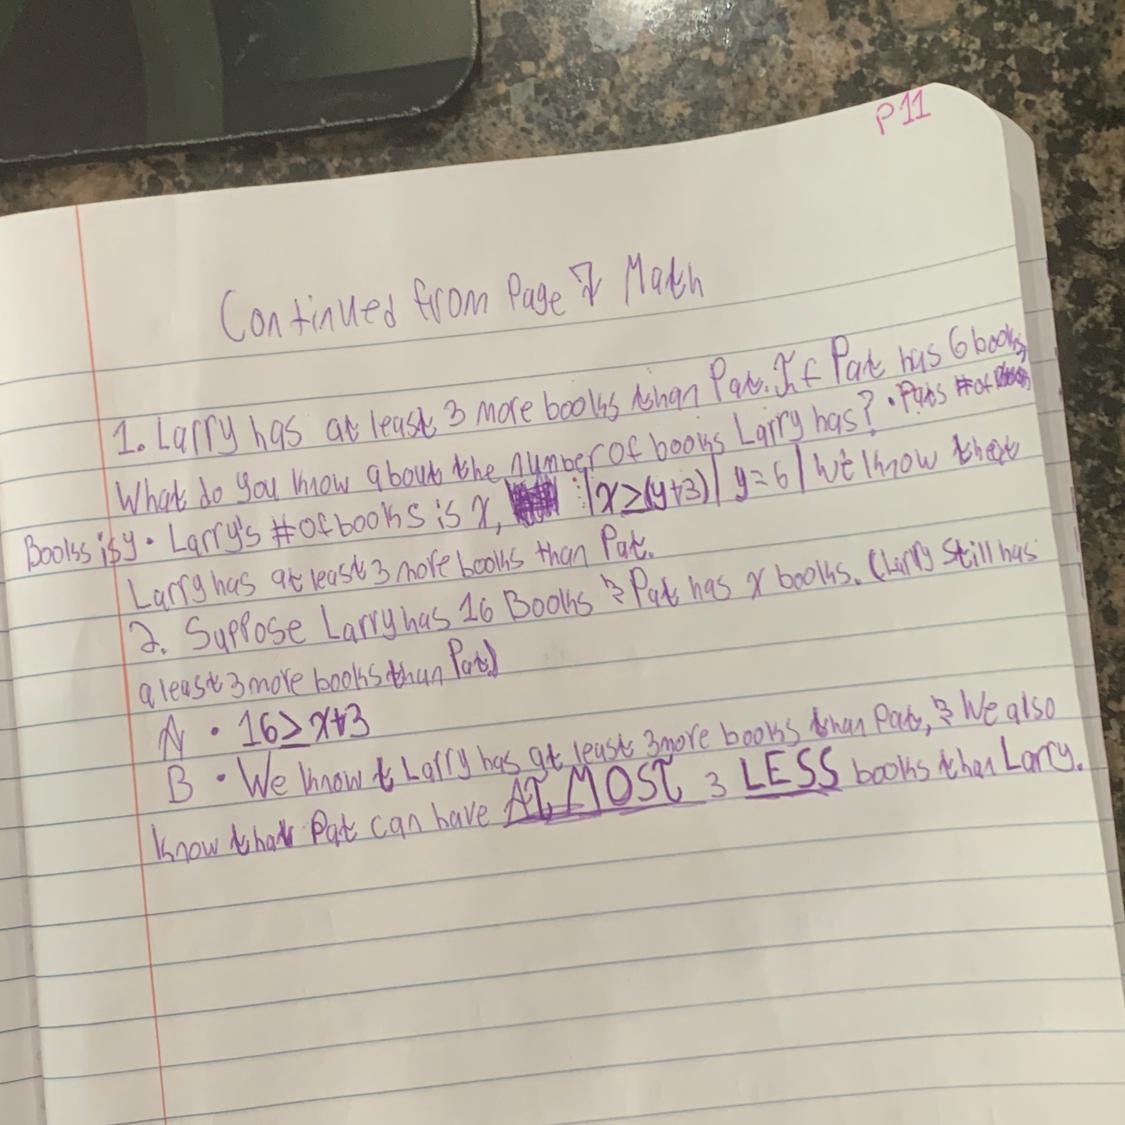 P11
Continued from Page 7 Math
1. Larry has at least 3 more books than Pat. If Pat has 6 books,
What do you know about the number of books Larry has? • Pats # of
Books is y • Larry's # of books is x, : |x ≥ (y+3)| y = 6 | We know that
Larry has at least 3 more books than Pat.
2. Suppose Larry has 16 Books & Pat has x books. (Larry still has
a least 3 more books than Pat)
A • 16 ≥ x+3
B • We know t Larry has at least 3 more books than Pat, & We also
know that Pat can have AT MOST 3 LESS books than Larry.